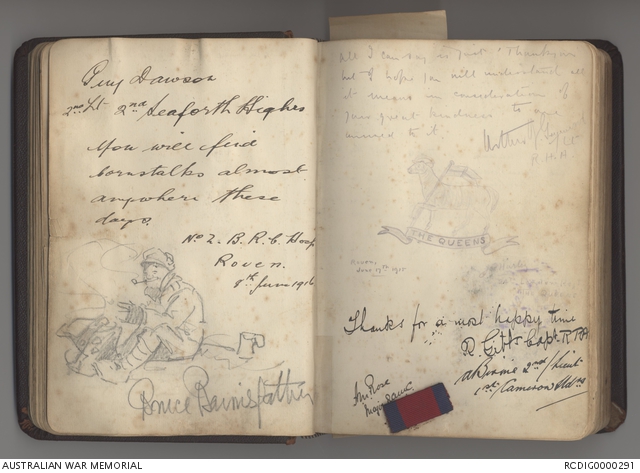 Guy Dawson
2nd Lt 2nd Seaforth Highrs
You will find
cornstalks almost
anywhere these
days.
No 2. B. R. C. Hosp
Rouen.
8th June 1916
Bruce Bairnsfather
All I can say is just "Thank you"
but I hope you will understand all
it means in consideration of
your great kindness to one
unused to it.
Capt
R.H.A.
THE QUEENS
Rouen
June 19th 1915
Thanks for a most happy time
R. Gitts Capt. R.F.A
A Birnie 2nd/Lieut
1st/Cameron Hldrs
Rose
Major
AUSTRALIAN WAR MEMORIAL
RCDIG0000291